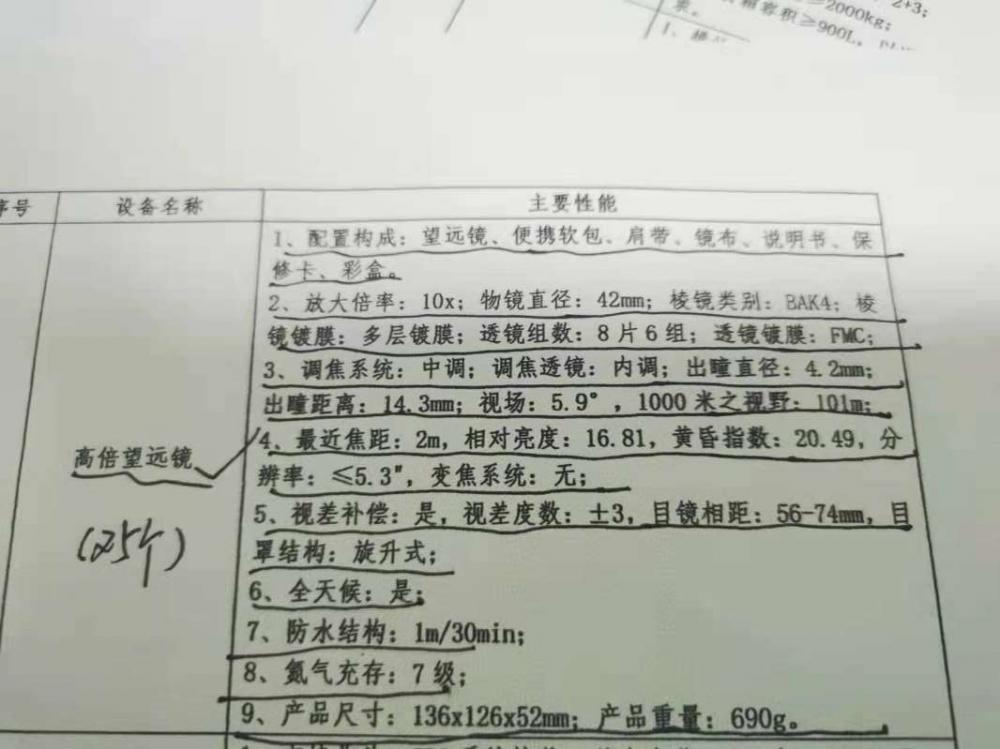 2+3;
≥2000kg;
箱容积≥900L,
求。
1、
序号 设备名称 主要性能
1、配置构成：望远镜、便携软包、肩带、镜布、说明书、保
修卡、彩盒。
2、放大倍率：10x；物镜直径：42mm；棱镜类别：BAK4；棱
镜镀膜：多层镀膜；透镜组数：8片6组；透镜镀膜：FMC；
3、调焦系统：中调；调焦透镜：内调；出瞳直径：4.2mm；
出瞳距离：14.3mm；视场：5.9°，1000米之视野：101m；
高倍望远镜
(25个)
4、最近焦距：2m，相对亮度：16.81，黄昏指数：20.49，分
辨率：≤5.3"，变焦系统：无；
5、视差补偿：是，视差度数：±3，目镜相距：56-74mm，目
罩结构：旋升式；
6、全天候：是；
7、防水结构：1m/30min；
8、氮气充存：7级；
9、产品尺寸：136x126x52mm；产品重量：690g。